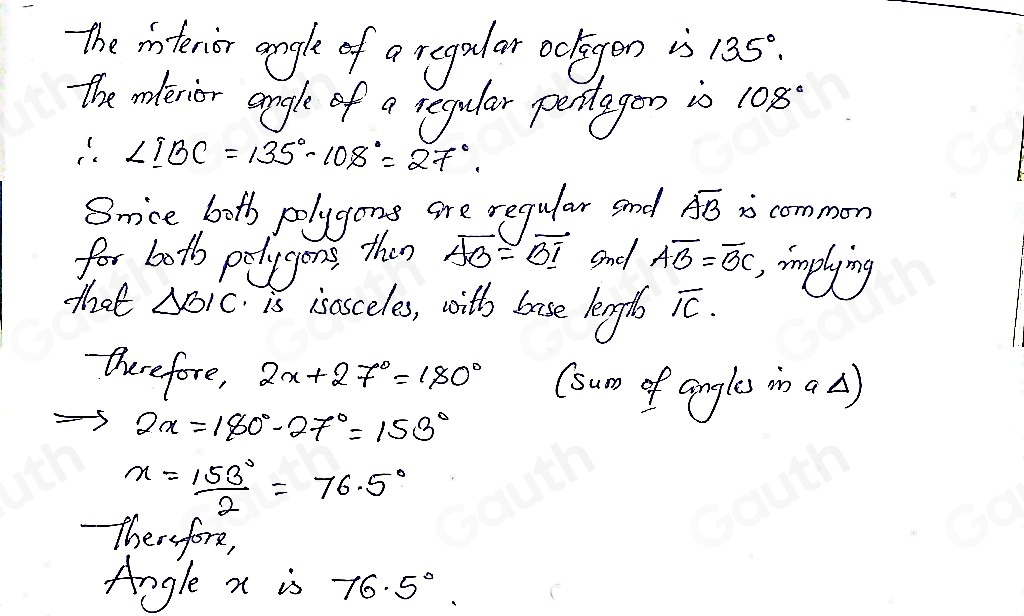 The interior angle of a regular octagon is 135°.
The interior angle of a regular pentagon is 108°
∴ ∠IBC = 135° - 108° = 27°.
Since both polygons are regular and A̅B̅ is common
for both polygons, then A̅B̅ = B̅I̅ and A̅B̅ = B̅C̅, implying
that △BIC is isosceles, with base length I̅C̅.
Therefore, 2x + 27° = 180° (sum of angles in a △)
⇒ 2x = 180° - 27° = 153°
x = 153°/2 = 76.5°
Therefore,
Angle x is 76.5°.